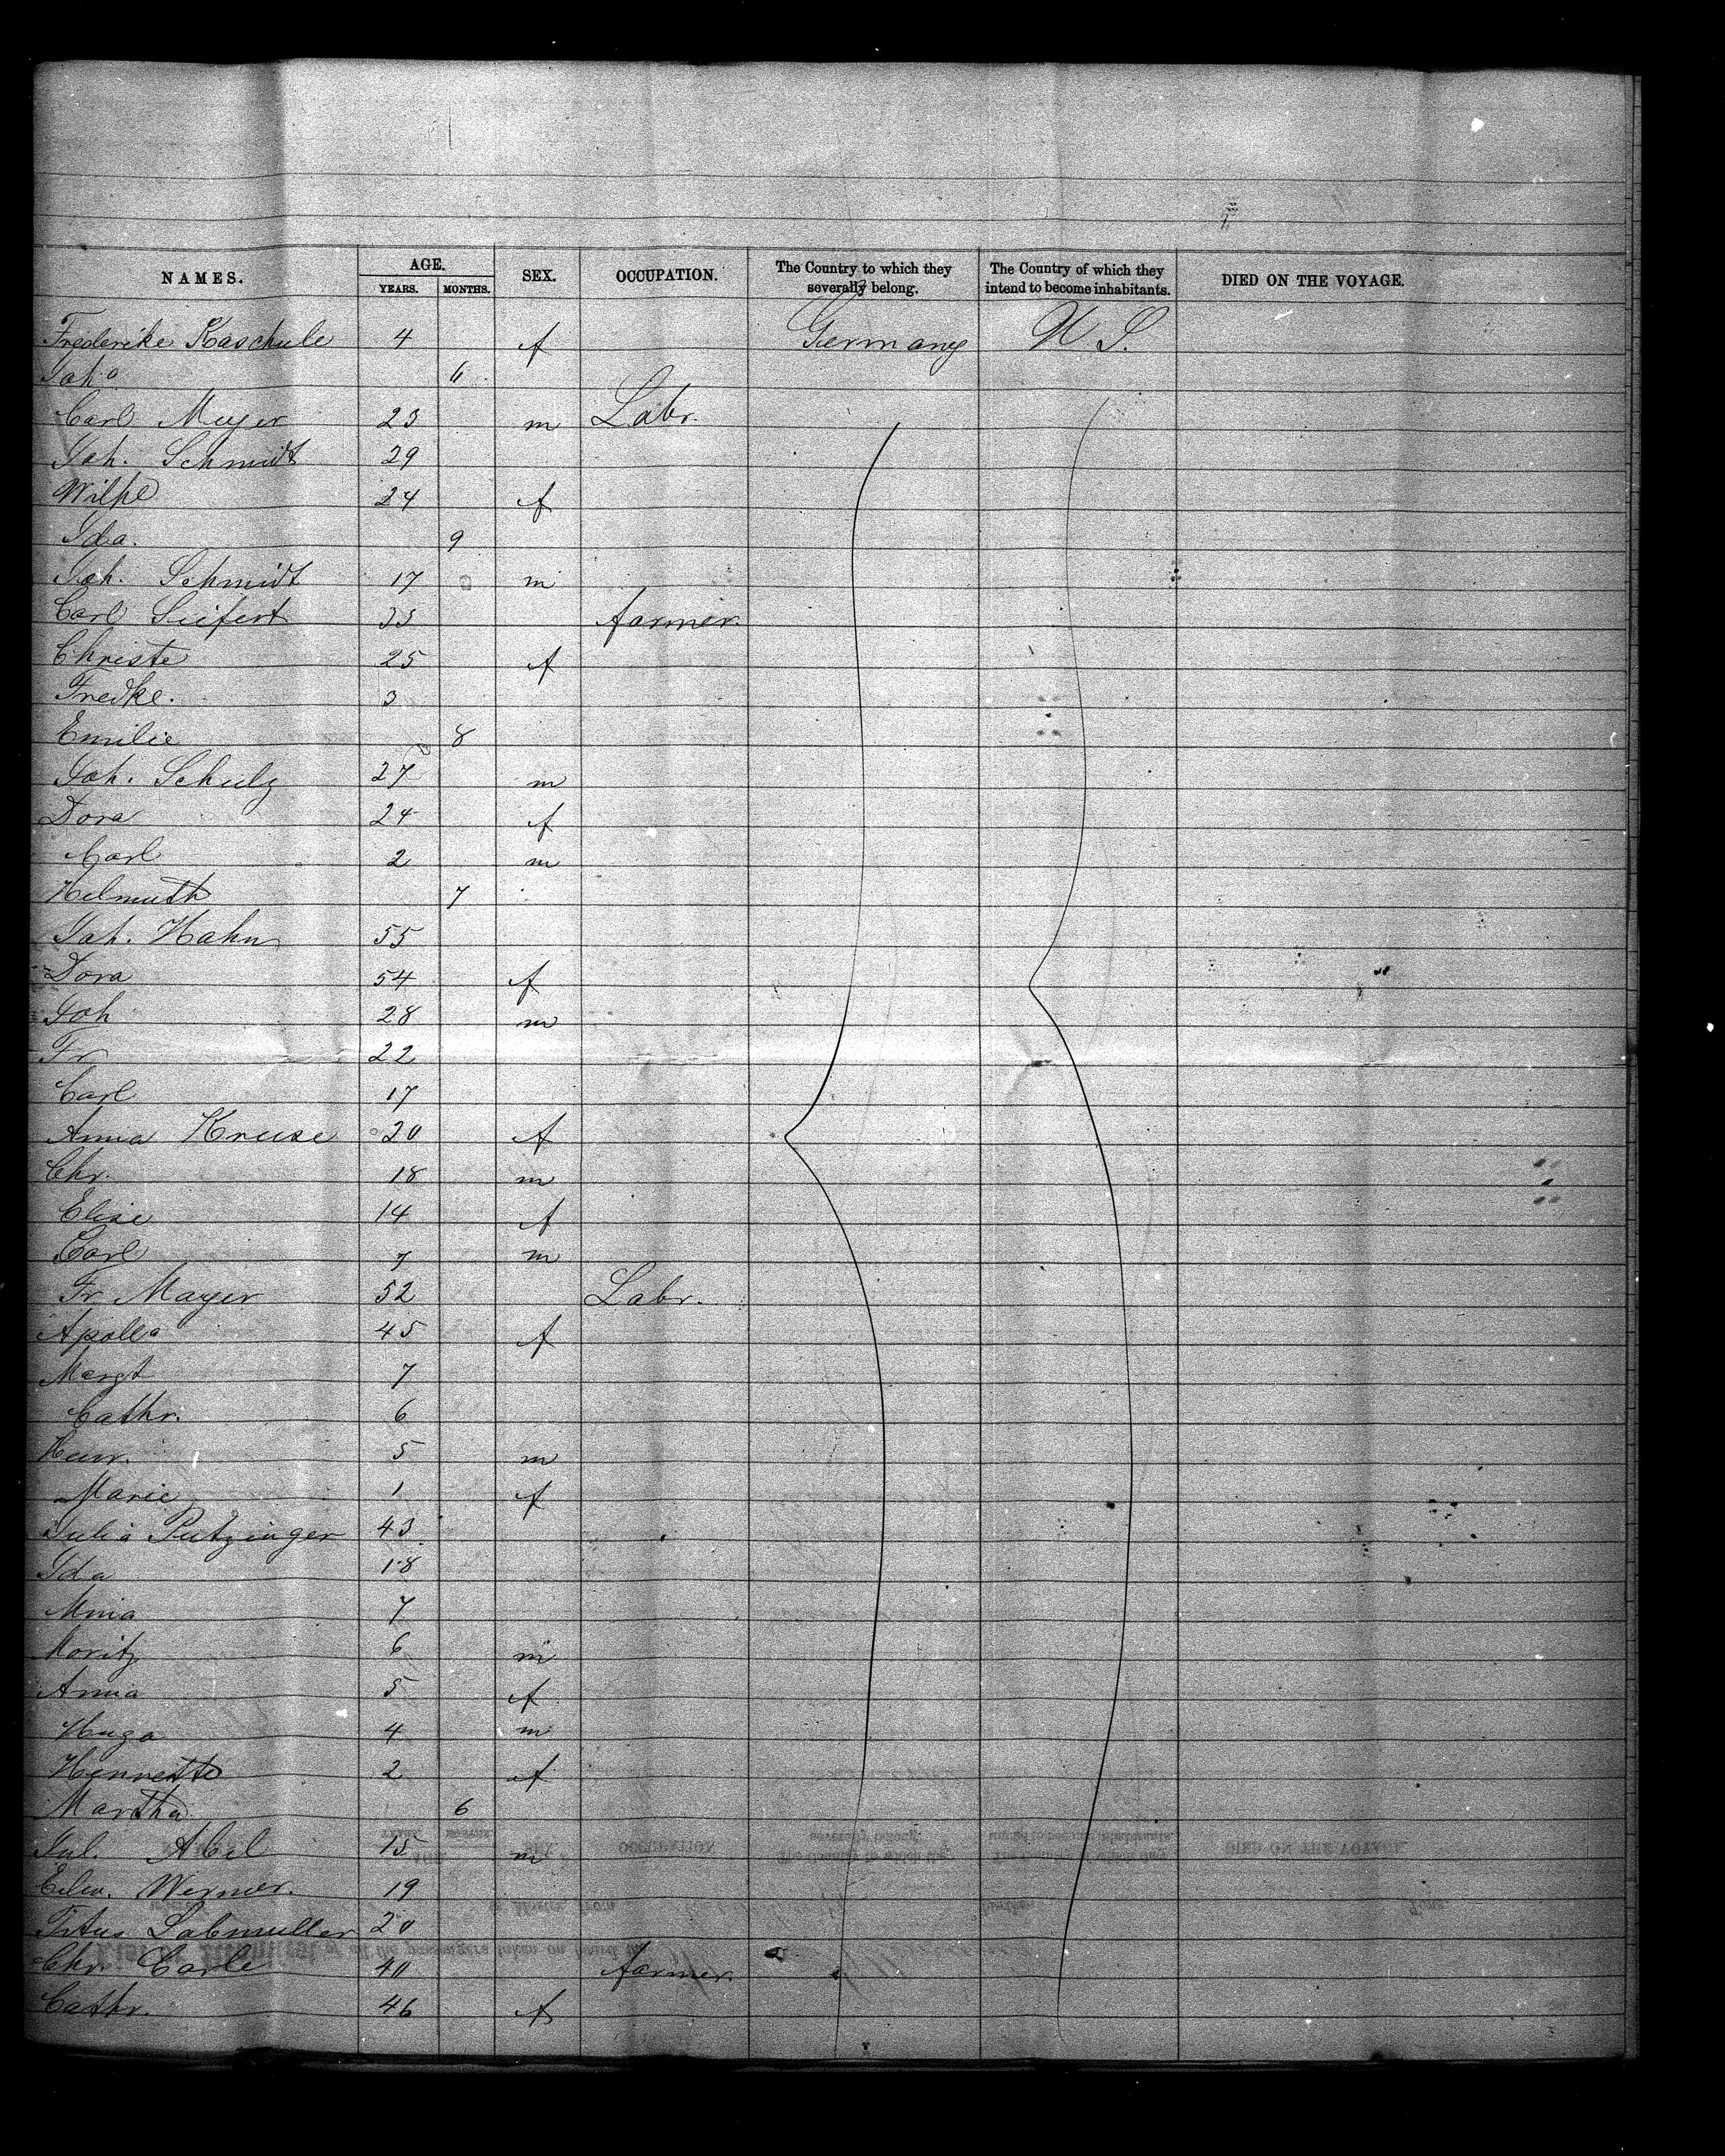 NAMES. AGE. SEX. OCCUPATION. The Country to which they severally belong. The Country of which they intend to become inhabitants. DIED ON THE VOYAGE.
YEARS. MONTHS.
Frederike Kaschule 4 f Germany U S.
Joha 6
Carl Meyer 23 m Labr.
Joh. Schmidt 29
Wilhe 24 f
Ida. 9
Joh. Schmidt 17 m
Carl Siefert 35 farmer.
Christe 25 f
Fredke. 3
Emilie 8
Joh. Schulz 27 m
Dora 24 f
Carl 2 m
Helmuth 7
Joh. Hahn 55
Dora 54 f
Joh 28 m
Fr 22
Carl 17
Anna Kruse 20 f
Chr. 18 m
Elise 14 f
Carl 7 m
Fr. Mayer 52 Labr.
Apolla 45 f
Margt 7
Cathr. 6
Henr. 5 m
Marie 1 f
Julia Putzinger 43
Ida 18
Mina 7
Moritz 6 m
Anna 5 f
Hugo 4 m
Henrette 2 f
Martha 6
Jul. Abel 15 m
Edw. Werner. 19
Titus Labmuller 20
Chr. Carle 40 farmer.
Cathr. 46 f